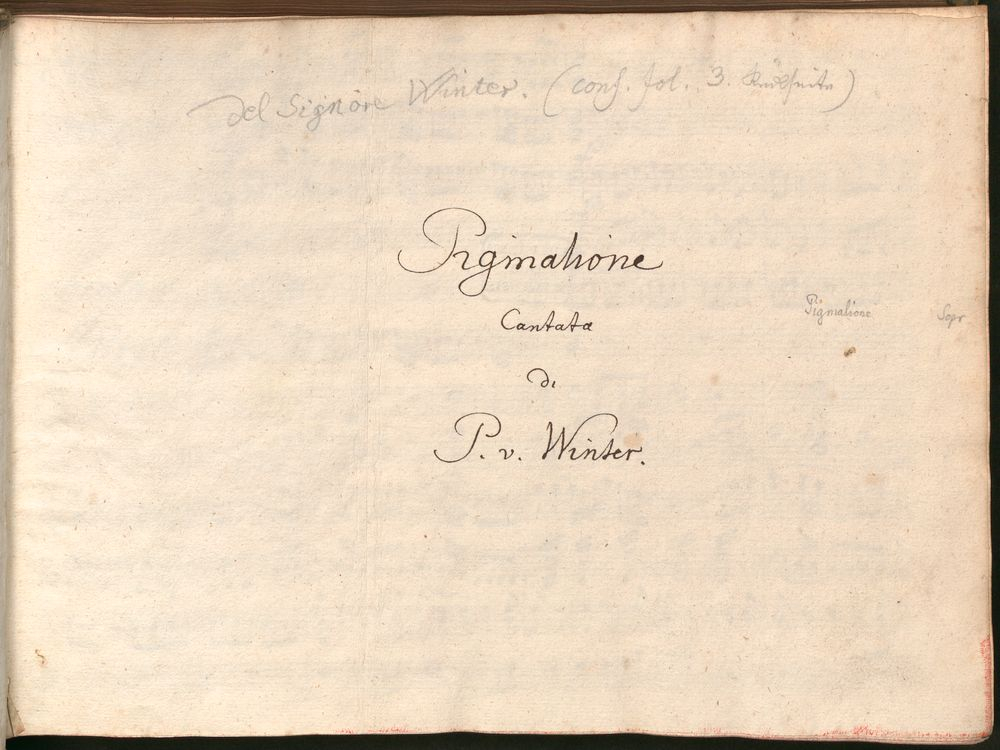 Del Signore Winter. (conf. fol. 3. Rückseite)
Pigmalione
Cantata
di
P. v. Winter.
Pigmalione
Sopr